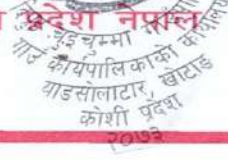 प्रदेश नेपाल
चुइचुम्मा
कार्यपालिकाको कार्यालय
याङसोलाटार, खोटाङ
कोशी प्रदेश
२०७३